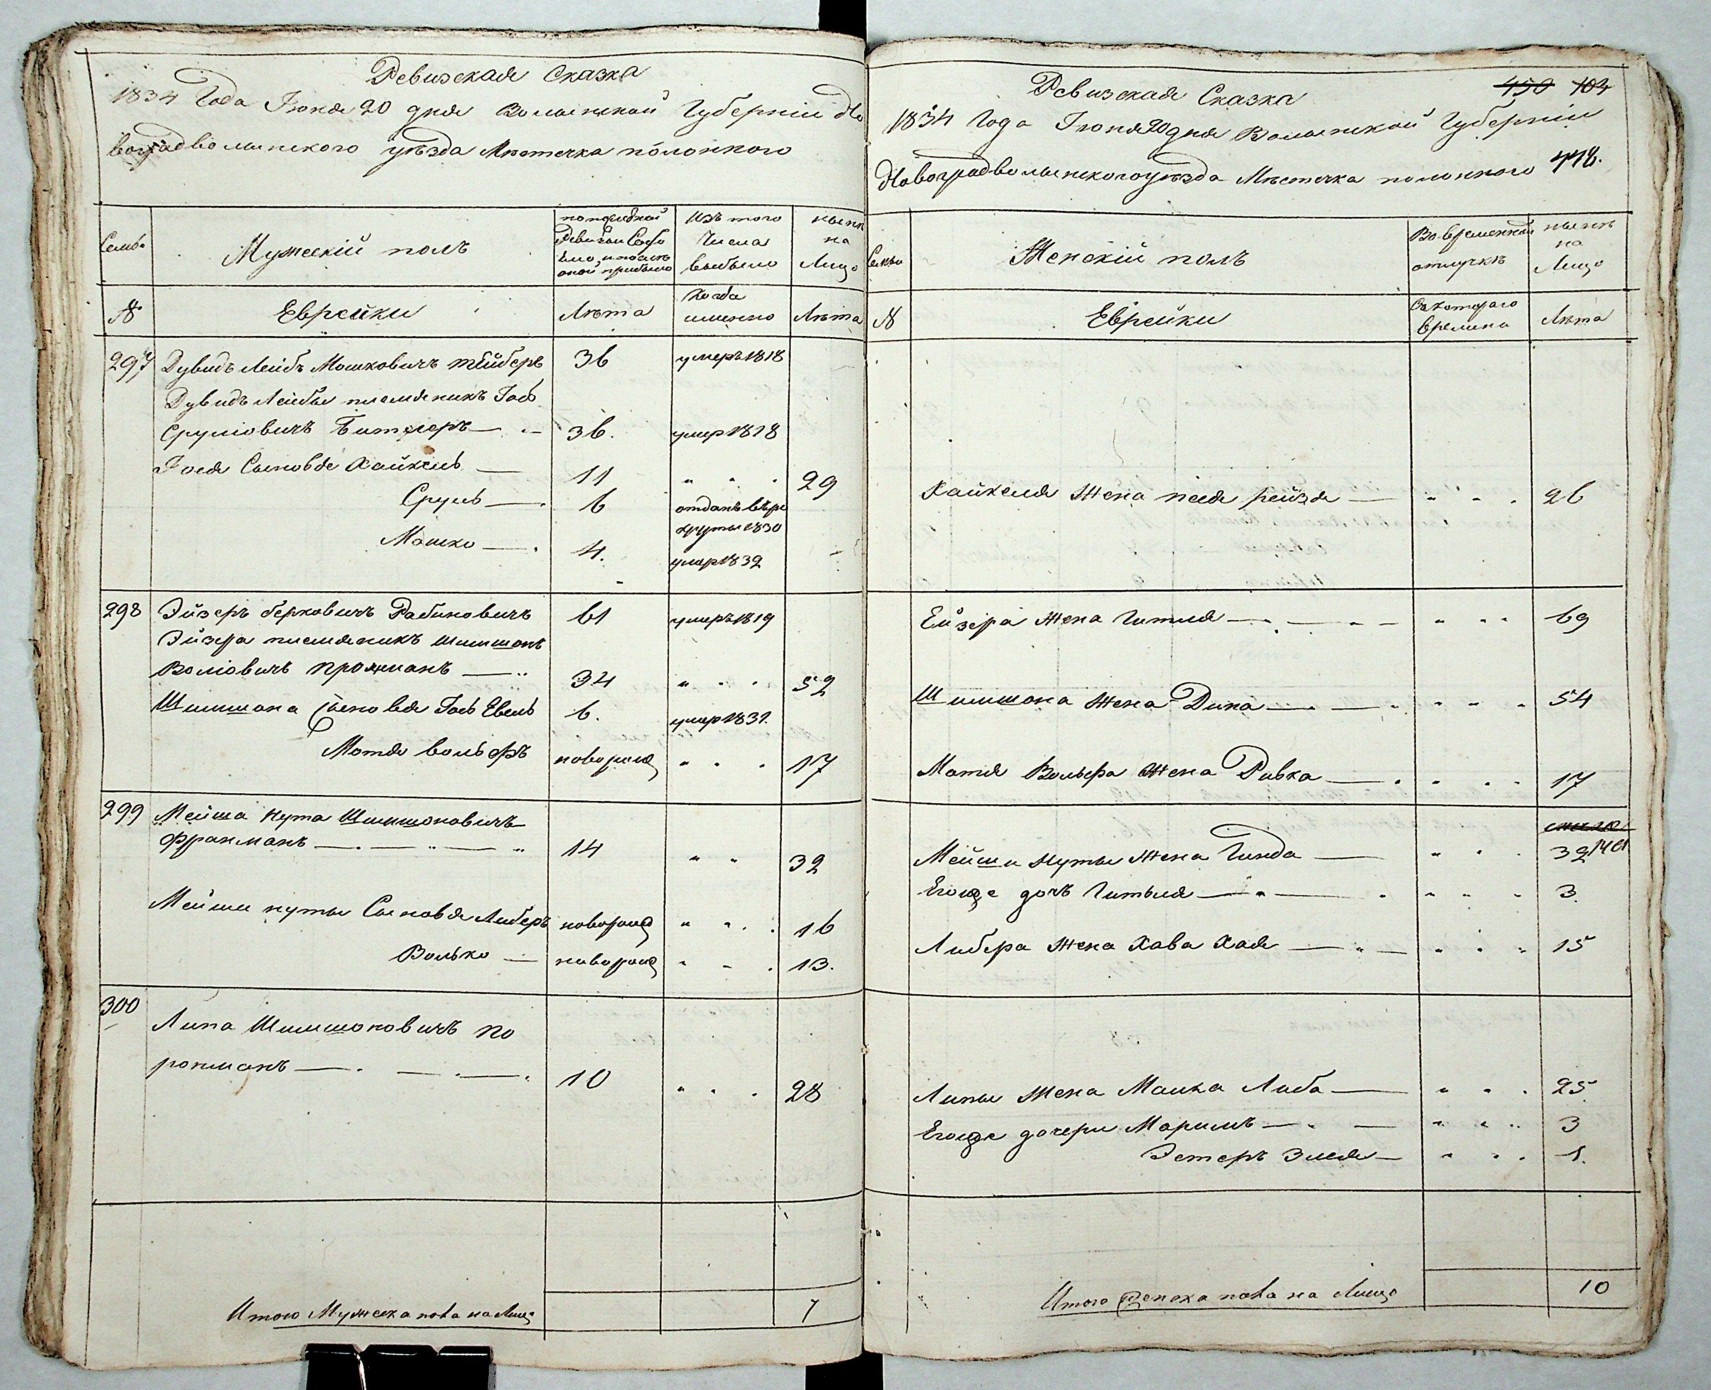 Ревизская Сказка
1834 Года Июня 20 дня Волынской Губерніи Но
воградволынского уѣзда Мѣстечка полонного
Семьи
Мужескій полъ
по последней
Ревизіи Состо
яло, и после
оной прибыло
Изъ того
Числа
выбыло
нынѣ
на
Лицо
№
Еврейки
Лѣта
Когда
именно
Лѣта
297
Дувидъ Лейбъ Мошковичъ
36
умеръ 1818
Дувидъ Лейбы племяникъ Іось
Сруліовичъ
36.
умер 1828
Іося Сыновья Хайкель
11
29
Сруль
6
отданъ в ре
круты 1830
Мошко
4.
умер 1832
298
Эйзеръ Берковичъ Рабиновичъ
61
умеръ 1819
Эйзера племяникъ Шимшонъ
Воліовичъ
34
52
Шимшона Сыновья Іось Евель
6.
умер 1831.
Мотя вольфъ
новорожд
17
299
Мейша Нута Шимшоновичъ
Фракманъ
14
32
Мейши нуты Сыновья Либеръ
новорожд
16
Волько
новорожд
13.
300
Липа Шимшоновичъ По
ропманъ
10
28
Итого Мужеска пола на Лицо
7
Ревизская Сказка
450 104
1834 Года Іюня 20 дня Волынской Губерніи
Новоградволынского уѣзда Мѣстечка полонного 418.
Семьи
Женскій полъ
Во временной
отлучкѣ
нынѣ
на
Лицо
№
Еврейки
Съ котораго
времени
Лѣта
Хайкеля Жена песя рейзя
26
Ейзера Жена Гитля
69
Шимшона Жена Дина
54
Мотя Вольфа Жена Ривка
17
Мейши Нуты Жена Гинда
32
Егоже дочъ Гитля
3.
Либера Жена Хава Хая
15
Липы Жена Малка Либа
25
Егоже дочери Маримъ
3
Эстеръ Элея
1.
Итого Женска пола на Лицо
10